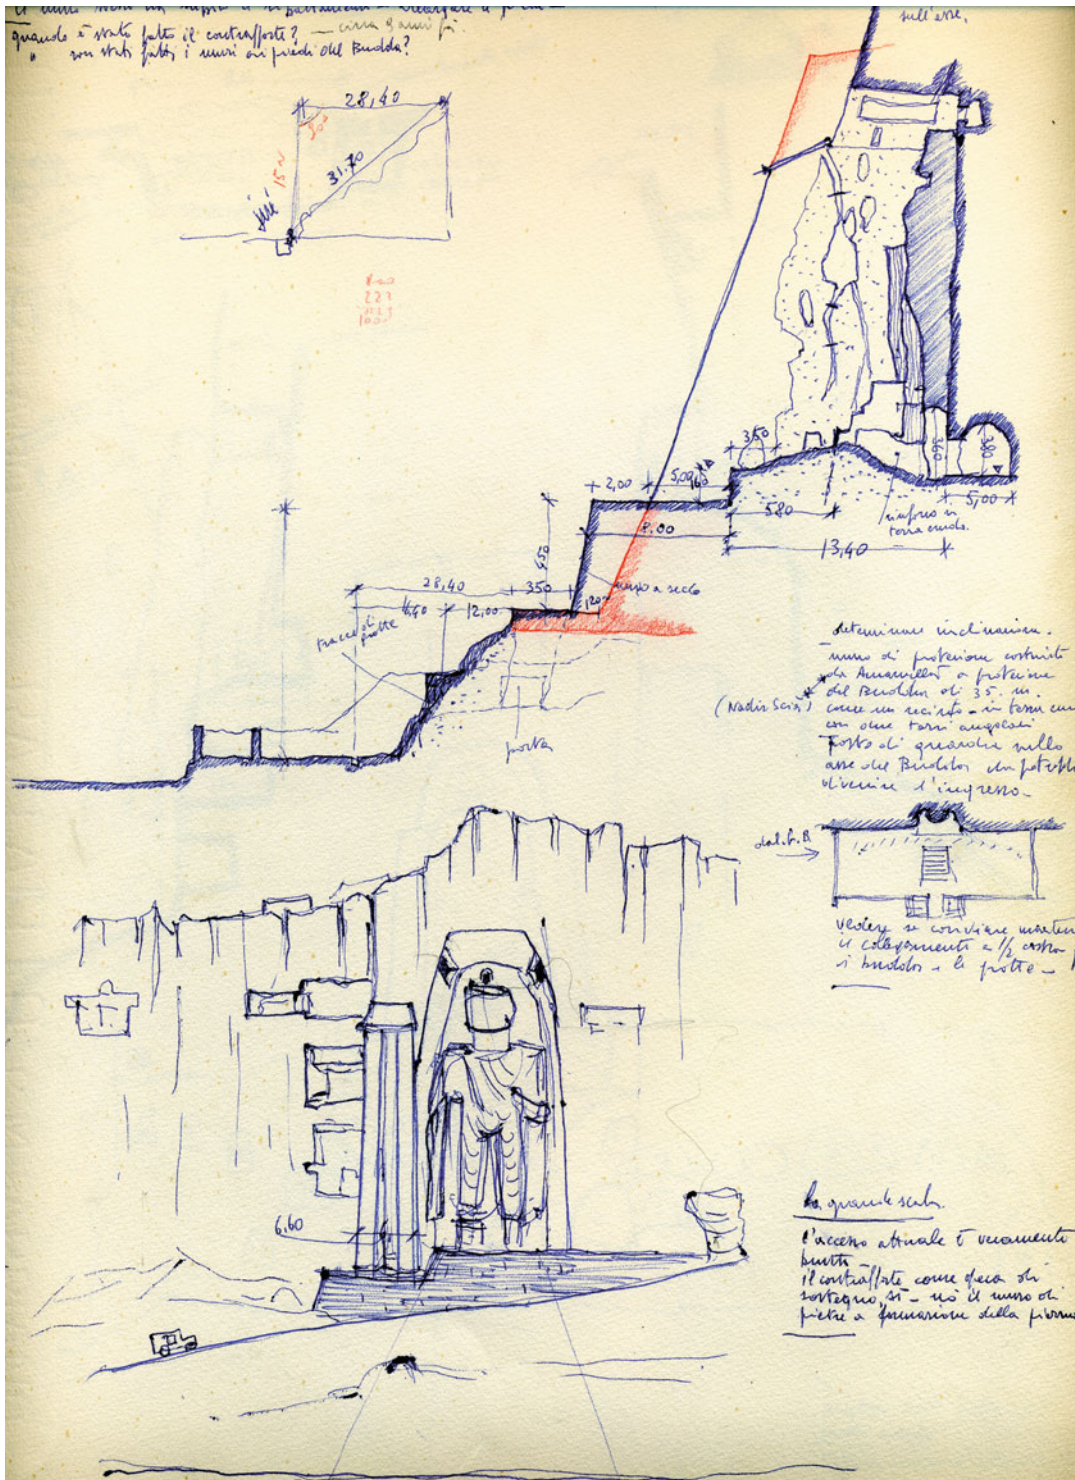 quando è stato fatto il contrafforte? — circa 9 anni fa.
" son stati fatti i muri ai piedi del Budda?
sull'asse.
28,40
90°
15 ~
31.70
800
223
1023
1000
350
2,00
5,00
160
580
360
380
5,00
8.00
rinforzo in
terra cruda.
13,40
450
28,40
350
muro a secco
120
4,40
12,00
tracce di
grotte
porta
determinare inclinazione.
muro di protezione costruito
da a protezione
del Buddha di 35. m.
(Nadir Scià)
come un recinto - in terra
con due torri angolari
Posto di guardia sullo
asse del Buddha che
divenire l'ingresso -
dal. G. B
vedere se conviene
il collegamento a 1/2 costa
i buddha e le grotte -
6,60
la grande scala.
l'accesso attuale è veramente
brutto
il contrafforte come opera di
sostegno, sì - no il muro di
pietre a formazione della